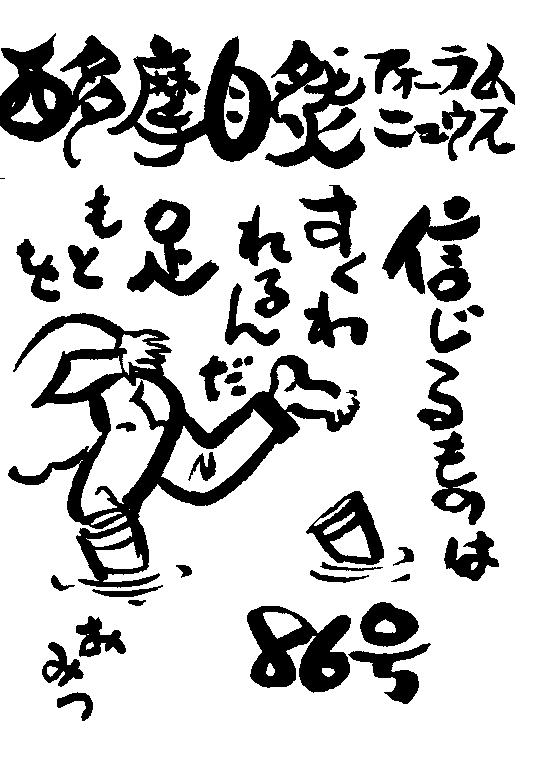 西多摩自然フォーラム
ニュウス
信じるものは
すくわ
れるん
だ
足
もと
を
86号
あく
みつ